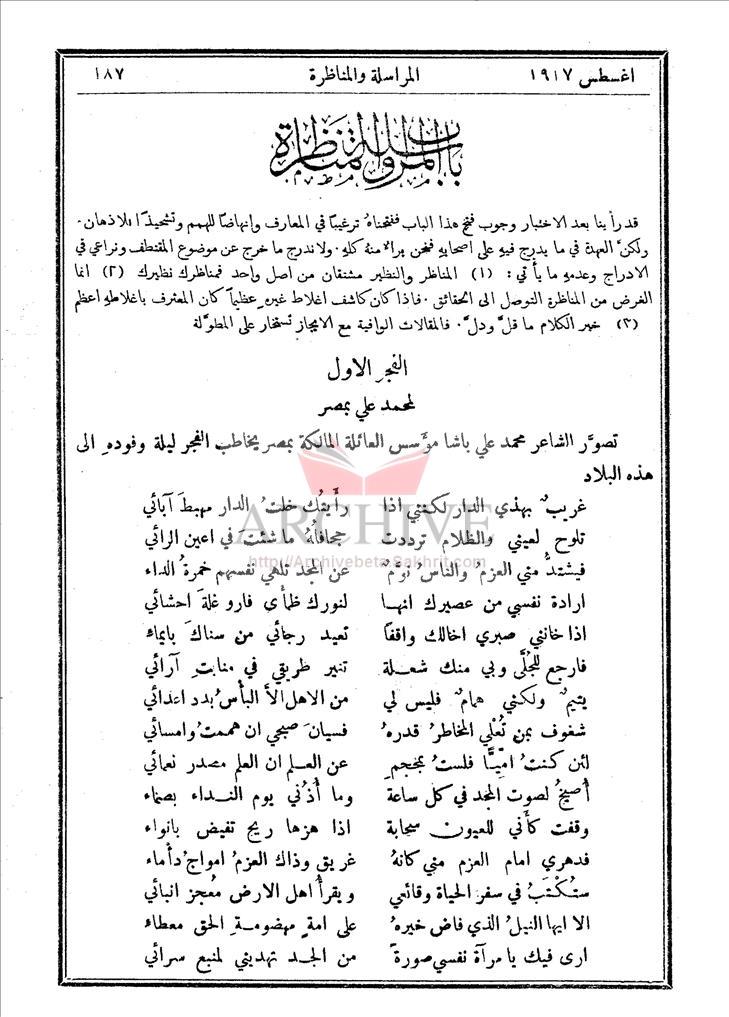 اغسطس ١٩١٧ المراسلة والمناظرة ١٨٧
باب المراسلة والمناظرة
قد رأينا بعد الاختبار وجوب فتح هذا الباب ففتحناهُ ترغيبًا في المعارف وانهاضًا للهمم وتشحيذًا للاذهان.
ولكنَّ العهدة في ما يدرج فيهِ على اصحابهِ فنحن براء منهُ كلهِ. ولا ندرج ما خرج عن موضوع المقتطف ونراعي في
الادراج وعدمهِ ما يأتي: (١) المناظر والنظير مشتقان من اصل واحد فمناظرك نظيرك (٢) انما
الغرض من المناظرة التوصل الى الحقائق. فاذا كان كاشف اغلاط غيرهِ عظيمًا كان المعترف باغلاطهِ اعظم
(٣) خير الكلام ما قلَّ ودلَّ. فالمقالات الوافية مع الايجاز تستخار على المطوَّلة
الفجر الاول
لمحمد علي بمصر
تصوَّر الشاعر محمد علي باشا مؤسس العائلة المالكة بمصر يخاطب الفجر ليلة وفودهِ الى
هذه البلاد
غريبٌ بهذي الدار لكنني اذا رأيتُك خلتُ الدار مهبطَ آبائي
تلوح لعيني والظلام ترددت جحافلهُ ما شئتَ في اعين الرائي
فيشتدُّ مني العزمُ والناسُ نوَّمٌ عن المجد تلهي نفسهم خمرةُ الداء
ارادة نفسي من عصيرك انها لنورك ظمأى فارو غلةَ احشائي
اذا خانني صبري اخالك واقفًا تعيد رجائي من سناكَ بايماء
فارجع للجُلَّى وبي منك شعلة تنير طريقي في منابتِ آرائي
يتيمٌ ولكني همامٌ فليس لي من الاهل الاَّ البأسُ بدد اعدائي
شغوف بمن تُعْلي المخاطرُ قدرهُ فسيانَ صبحي ان هممتُ وامسائي
لئن كنتُ امّيًّا فلستُ بمحجمٍ عن العلم ان العلم مصدر نعمائي
أُصيخُ لصوت المجد في كل ساعة وما أُذُني يوم النداء بصماء
وقفت كأني للعيون سحابة اذا هزها ريح تفيض بانواء
فدهري امام العزم مني كانهُ غريق وذاك العزمُ امواجُ دأماء
ستُكْتَبُ في سفر الحياة وقائعي ويقرأُ اهل الارض مُعجز انبائي
الا ايها النيلُ الذي فاض خيرهُ على امةٍ مهضومةِ الحق معطاء
ارى فيك يا مرآة نفسي صورةً من الجد تهديني لمنبع سرائي
ARCHIVE
http://Archivebeta.Sakhrit.com